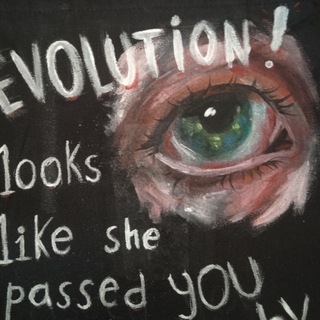 EVOLUTION!
looks
like she
passed YOU
by